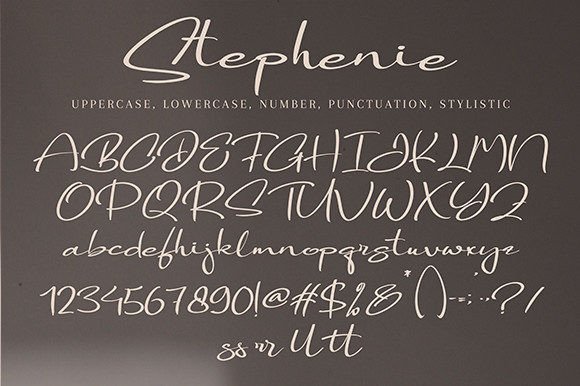 Stephenie
UPPERCASE, LOWERCASE, NUMBER, PUNCTUATION, STYLISTIC
ABCDEFGHIJKLMN
OPQRSTUVWXYZ
abcdefhijklmnopqrstuvwxyz
1234567890!@#$%&*()-=;:,.?/
ss rr U tt